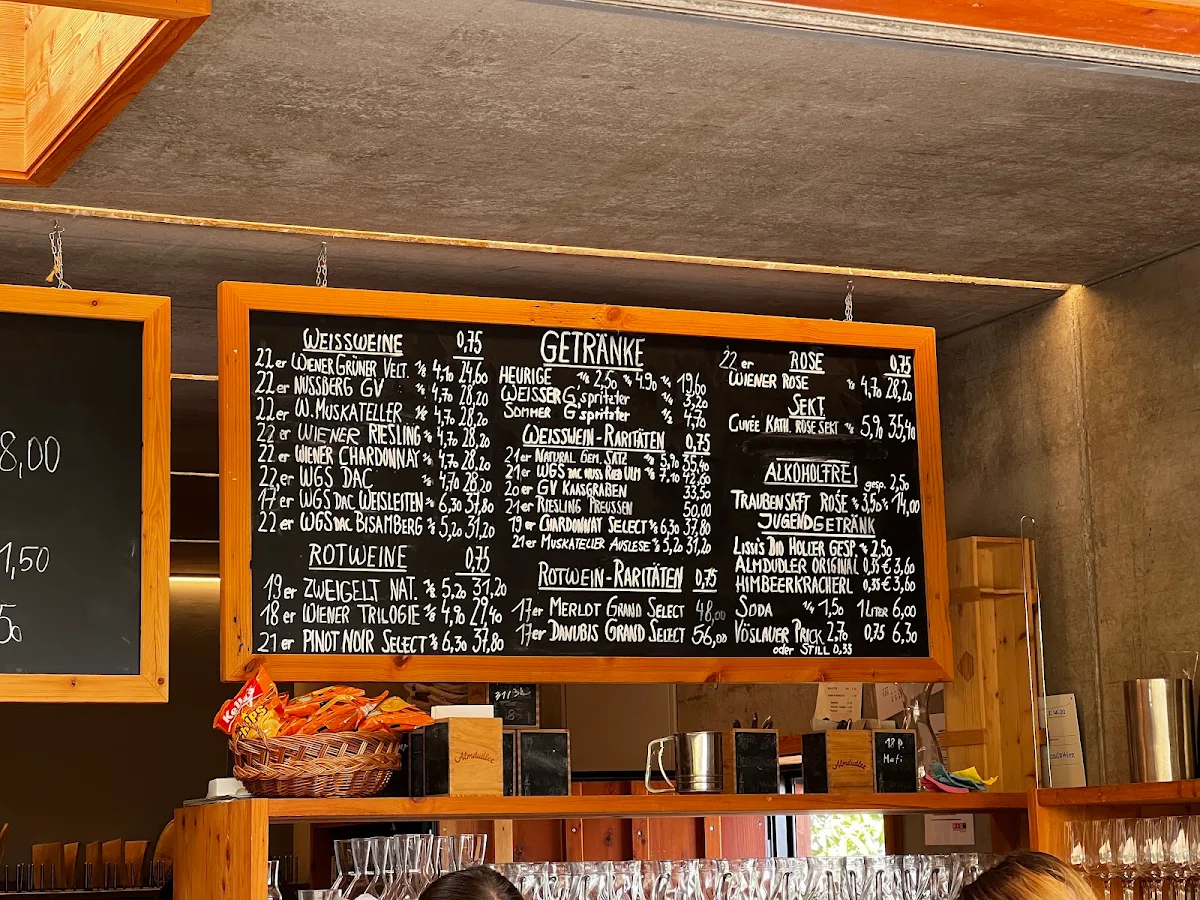 8,00
1,50
WEISSWEINE 0,75
22er WIENER GRÜNER VELT. 1/8 4,10 24,60
22er NUSSBERG GV 1/8 4,70 28,20
22er W. MUSKATELLER 1/8 4,70 28,20
22er WIENER RIESLING 1/8 4,70 28,20
22er WIENER CHARDONNAY 1/8 4,70 28,20
22er WGS DAC 1/8 4,70 28,20
17er WGS DAC WEISLEITEN 1/8 6,30 37,80
22er WGS DAC BISAMBERG 1/8 5,20 31,20
ROTWEINE 0,75
19er ZWEIGELT NAT. 1/8 5,20 31,20
18er WIENER TRILOGIE 1/8 4,90 29,40
21er PINOT NOIR SELECT 1/8 6,30 37,80
GETRÄNKE
HEURIGE 1/8 2,50 1/4 4,90 1/1 19,60
WEISSER G'spritzter 1/4 3,20
SOMMER G'spritzter 1/2 4,70
WEISSWEIN-RARITÄTEN 0,75
21er NATURAL GEM. SATZ 1/8 5,90 35,40
21er WGS DAC NUSS RIED ULM 1/8 7,10 42,60
20er GV KAASGRABEN 33,50
21er RIESLING PREUSSEN 50,00
19er CHARDONNAY SELECT 1/8 6,30 37,80
21er MUSKATELLER AUSLESE 1/8 5,20 31,20
ROTWEIN-RARITÄTEN 0,75
17er MERLOT GRAND SELECT 48,00
17er DANUBIS GRAND SELECT 56,00
22er ROSE 0,75
WIENER ROSE 1/8 4,70 28,20
SEKT
CUVÉE KATH. ROSE SEKT 1/8 5,90 35,40
ALKOHOLFREI
gesp. 2,50
TRAUBENSAFT ROSE 1/4 3,50 1/1 14,00
JUGENDGETRÄNK
LISSI'S BIO HOLLER GESP. 1/4 2,50
ALMDUDLER ORIGINAL 0,35 € 3,60
HIMBEERKRACHERL 0,35 € 3,60
SODA 1/4 1,50 1 LITER 6,00
VÖSLAUER PRICK 2,70 0,75 6,30
oder STILL 0,33
Kelly's
Chips
Almdudler
Almdudler
18 P.
Mafi